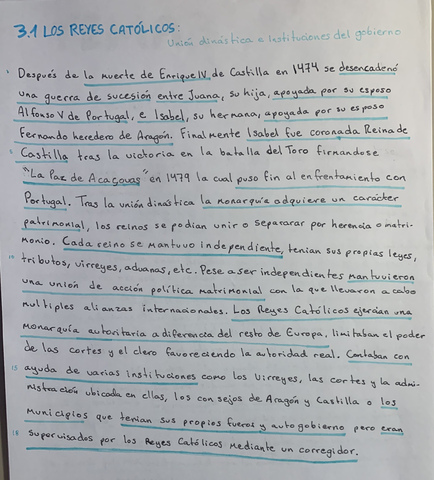 3.1 LOS REYES CATÓLICOS:
Unión dinástica e Instituciones del gobierno
Después de la muerte de Enrique IV de Castilla en 1474 se desencadenó
una guerra de sucesión entre Juana, su hija, apoyada por su esposo
Alfonso V de Portugal, e Isabel, su hermana, apoyada por su esposo
Fernando heredero de Aragón. Finalmente Isabel fue coronada Reina de
5 Castilla tras la victoria en la batalla del Toro firmandose
"La Paz de Acaçovas" en 1479 la cual puso fin al enfrentamiento con
Portugal. Tras la unión dinástica la monarquía adquiere un carácter
patrimonial, los reinos se podían unir o separarar por herencia o matri-
monio. Cada reino se mantuvo independiente, tenían sus propias leyes,
10 tributos, virreyes, aduanas, etc. Pese a ser independientes mantuvieron
una unión de acción política matrimonial con la que llevaron a cabo
multiples alianzas internacionales. Los Reyes Católicos ejercían una
monarquía autoritaria a diferencia del resto de Europa, limitaban el poder
de las cortes y el clero favoreciendo la autoridad real. Contaban con
15 ayuda de varias instituciones como los Virreyes, las cortes y la admi-
nistración ubicada en ellas, los consejos de Aragón y Castilla o los
Municipios que tenían sus propios fueros y autogobierno pero eran
18 supervisados por los Reyes Católicos mediante un corregidor.